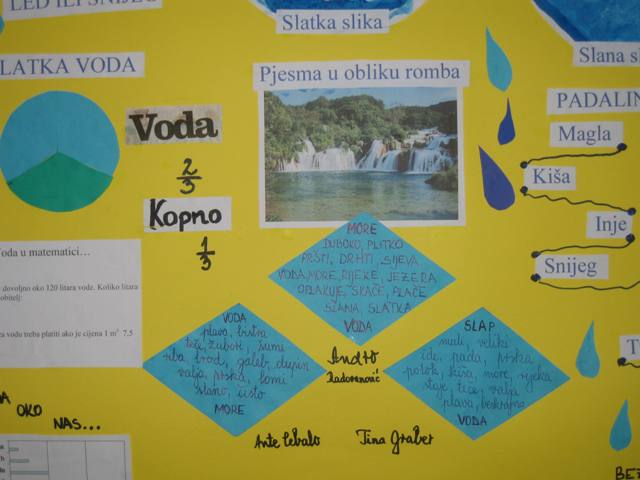 LED ILI SNIJEG
Slatka slika
Slana sl
LATKA VODA
Pjesma u obliku romba
PADALIN
Voda
2/3
Kopno
1/3
Magla
Kiša
Inje
Snijeg
Voda u matematici...
dovoljno oko 120 litara vode. Koliko litara
obitelj:
za vodu treba platiti ako je cijena 1 m³ 7,5
MORE
DUBOKO, PLITKO
PRŠTI, DRHTI, SIJEVA
VODA, MORE, RIJEKE, JEZERA
OBLAKUJE, SKAČE, PLAČE
SLANA, SLATKA
VODA
VODA
plava, bistra
teče, žubori, šumi
riba, brod, galeb, dupin
valja, prska, lomi
slano, čisto
MORE
SLAP
nudi, veliki
ide, pada, prska
potok, kiša, more, rijeka
stoje, teče, valja
plava, beskrajna
VODA
Andro
Radovanović
Ante Cebalo
Tina Graber
OKO
NAS...